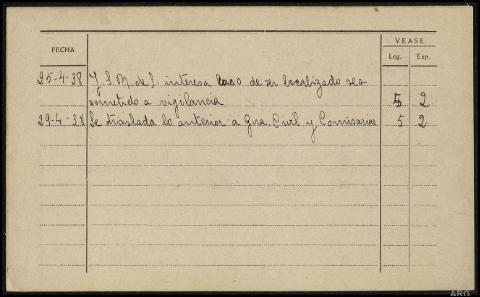 VEASE
FECHA
Leg. Exp.
25-4-38 J S M de I. interesa caso de ser localizado sea
sometido a vigilancia 5 2
29-4-38 Se traslada lo anterior a Gua. Civil y Comisarias 5 2
ARG